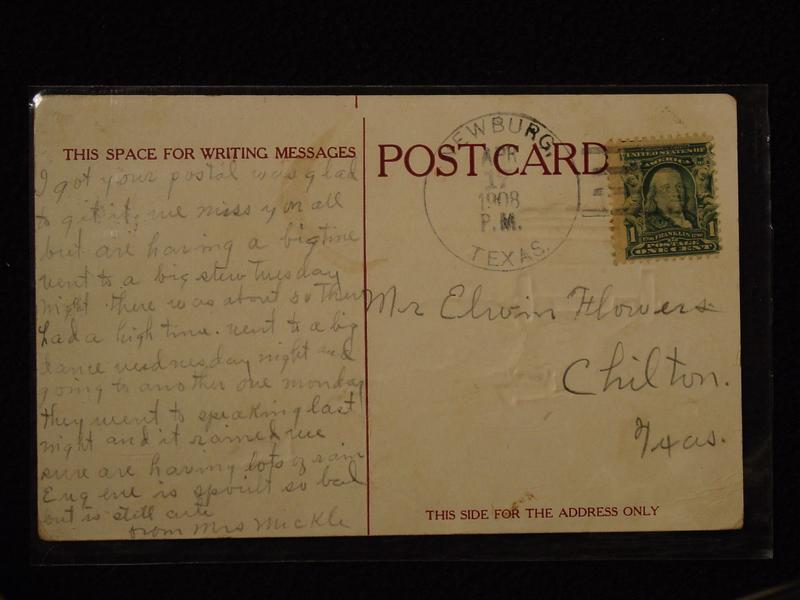 THIS SPACE FOR WRITING MESSAGES
I got your postal was glad
to get it. we miss you all
but are having a big time
went to a big stew Tuesday
night there was about 50 there
had a high time. went to a big
dance wednesday night and
going to another one monday
they went to speaking last
night and it rained we
sure are having lots of rain
Eugene is spoilt so bad
but is still cute
from Mrs Mickle
POST CARD
EWBURG,
APR
17
1908
P.M.
TEXAS.
UNITED STATES OF
AMERICA
1 FRANKLIN 1
POSTAGE
ONE CENT
Mr Elwin Flowers
Chilton.
Texas.
THIS SIDE FOR THE ADDRESS ONLY